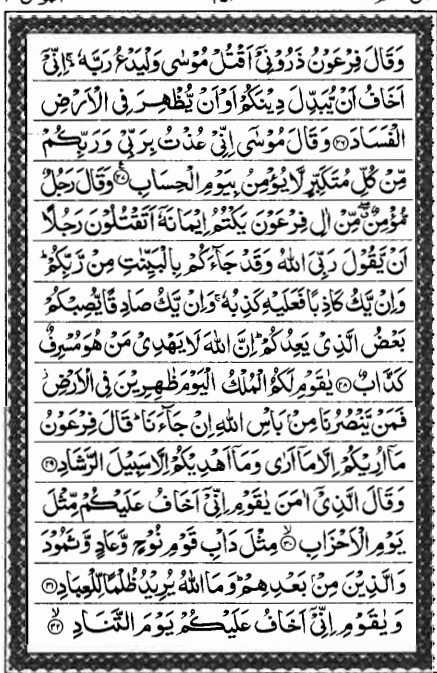 وَقَالَ فِرْعَوْنُ ذَرُوْنِيْۤ اَقْتُلْ مُوْسٰى وَلْيَدْعُ رَبَّهٗ ۚ اِنِّيْۤ
اَخَافُ اَنْ يُّبَدِّلَ دِيْنَكُمْ اَوْ اَنْ يُّظْهِرَ فِى الْاَرْضِ
الْفَسَادَ ﴿۲۶﴾ وَقَالَ مُوْسٰۤى اِنِّيْ عُذْتُ بِرَبِّيْ وَرَبِّكُمْ
مِّنْ كُلِّ مُتَكَبِّرٍ لَّا يُؤْمِنُ بِيَوْمِ الْحِسَابِ ﴿۲۷﴾ وَقَالَ رَجُلٌ
مُّؤْمِنٌ ۖ مِّنْ اٰلِ فِرْعَوْنَ يَكْتُمُ اِيْمَانَهٗۤ اَتَقْتُلُوْنَ رَجُلًا
اَنْ يَّقُوْلَ رَبِّيَ اللّٰهُ وَقَدْ جَآءَكُمْ بِالْبَيِّنٰتِ مِنْ رَّبِّكُمْ ؕ
وَاِنْ يَّكُ كَاذِبًا فَعَلَيْهِ كَذِبُهٗ ۚ وَاِنْ يَّكُ صَادِقًا يُّصِبْكُمْ
بَعْضُ الَّذِيْ يَعِدُكُمْ ؕ اِنَّ اللّٰهَ لَا يَهْدِيْ مَنْ هُوَ مُسْرِفٌ
كَذَّابٌ ﴿۲۸﴾ يٰقَوْمِ لَكُمُ الْمُلْكُ الْيَوْمَ ظٰهِرِيْنَ فِى الْاَرْضِ ۫
فَمَنْ يَّنْصُرُنَا مِنْۢ بَاْسِ اللّٰهِ اِنْ جَآءَنَا ؕ قَالَ فِرْعَوْنُ
مَاۤ اُرِيْكُمْ اِلَّا مَاۤ اَرٰى وَمَاۤ اَهْدِيْكُمْ اِلَّا سَبِيْلَ الرَّشَادِ ﴿۲۹﴾
وَقَالَ الَّذِيْۤ اٰمَنَ يٰقَوْمِ اِنِّيْۤ اَخَافُ عَلَيْكُمْ مِّثْلَ
يَوْمِ الْاَحْزَابِ ﴿۳۰﴾ۙ مِثْلَ دَاْبِ قَوْمِ نُوْحٍ وَّعَادٍ وَّثَمُوْدَ
وَالَّذِيْنَ مِنْۢ بَعْدِهِمْ ؕ وَمَا اللّٰهُ يُرِيْدُ ظُلْمًا لِّلْعِبَادِ ﴿۳۱﴾
وَيٰقَوْمِ اِنِّيْۤ اَخَافُ عَلَيْكُمْ يَوْمَ التَّنَادِ ﴿۳۲﴾ۙ